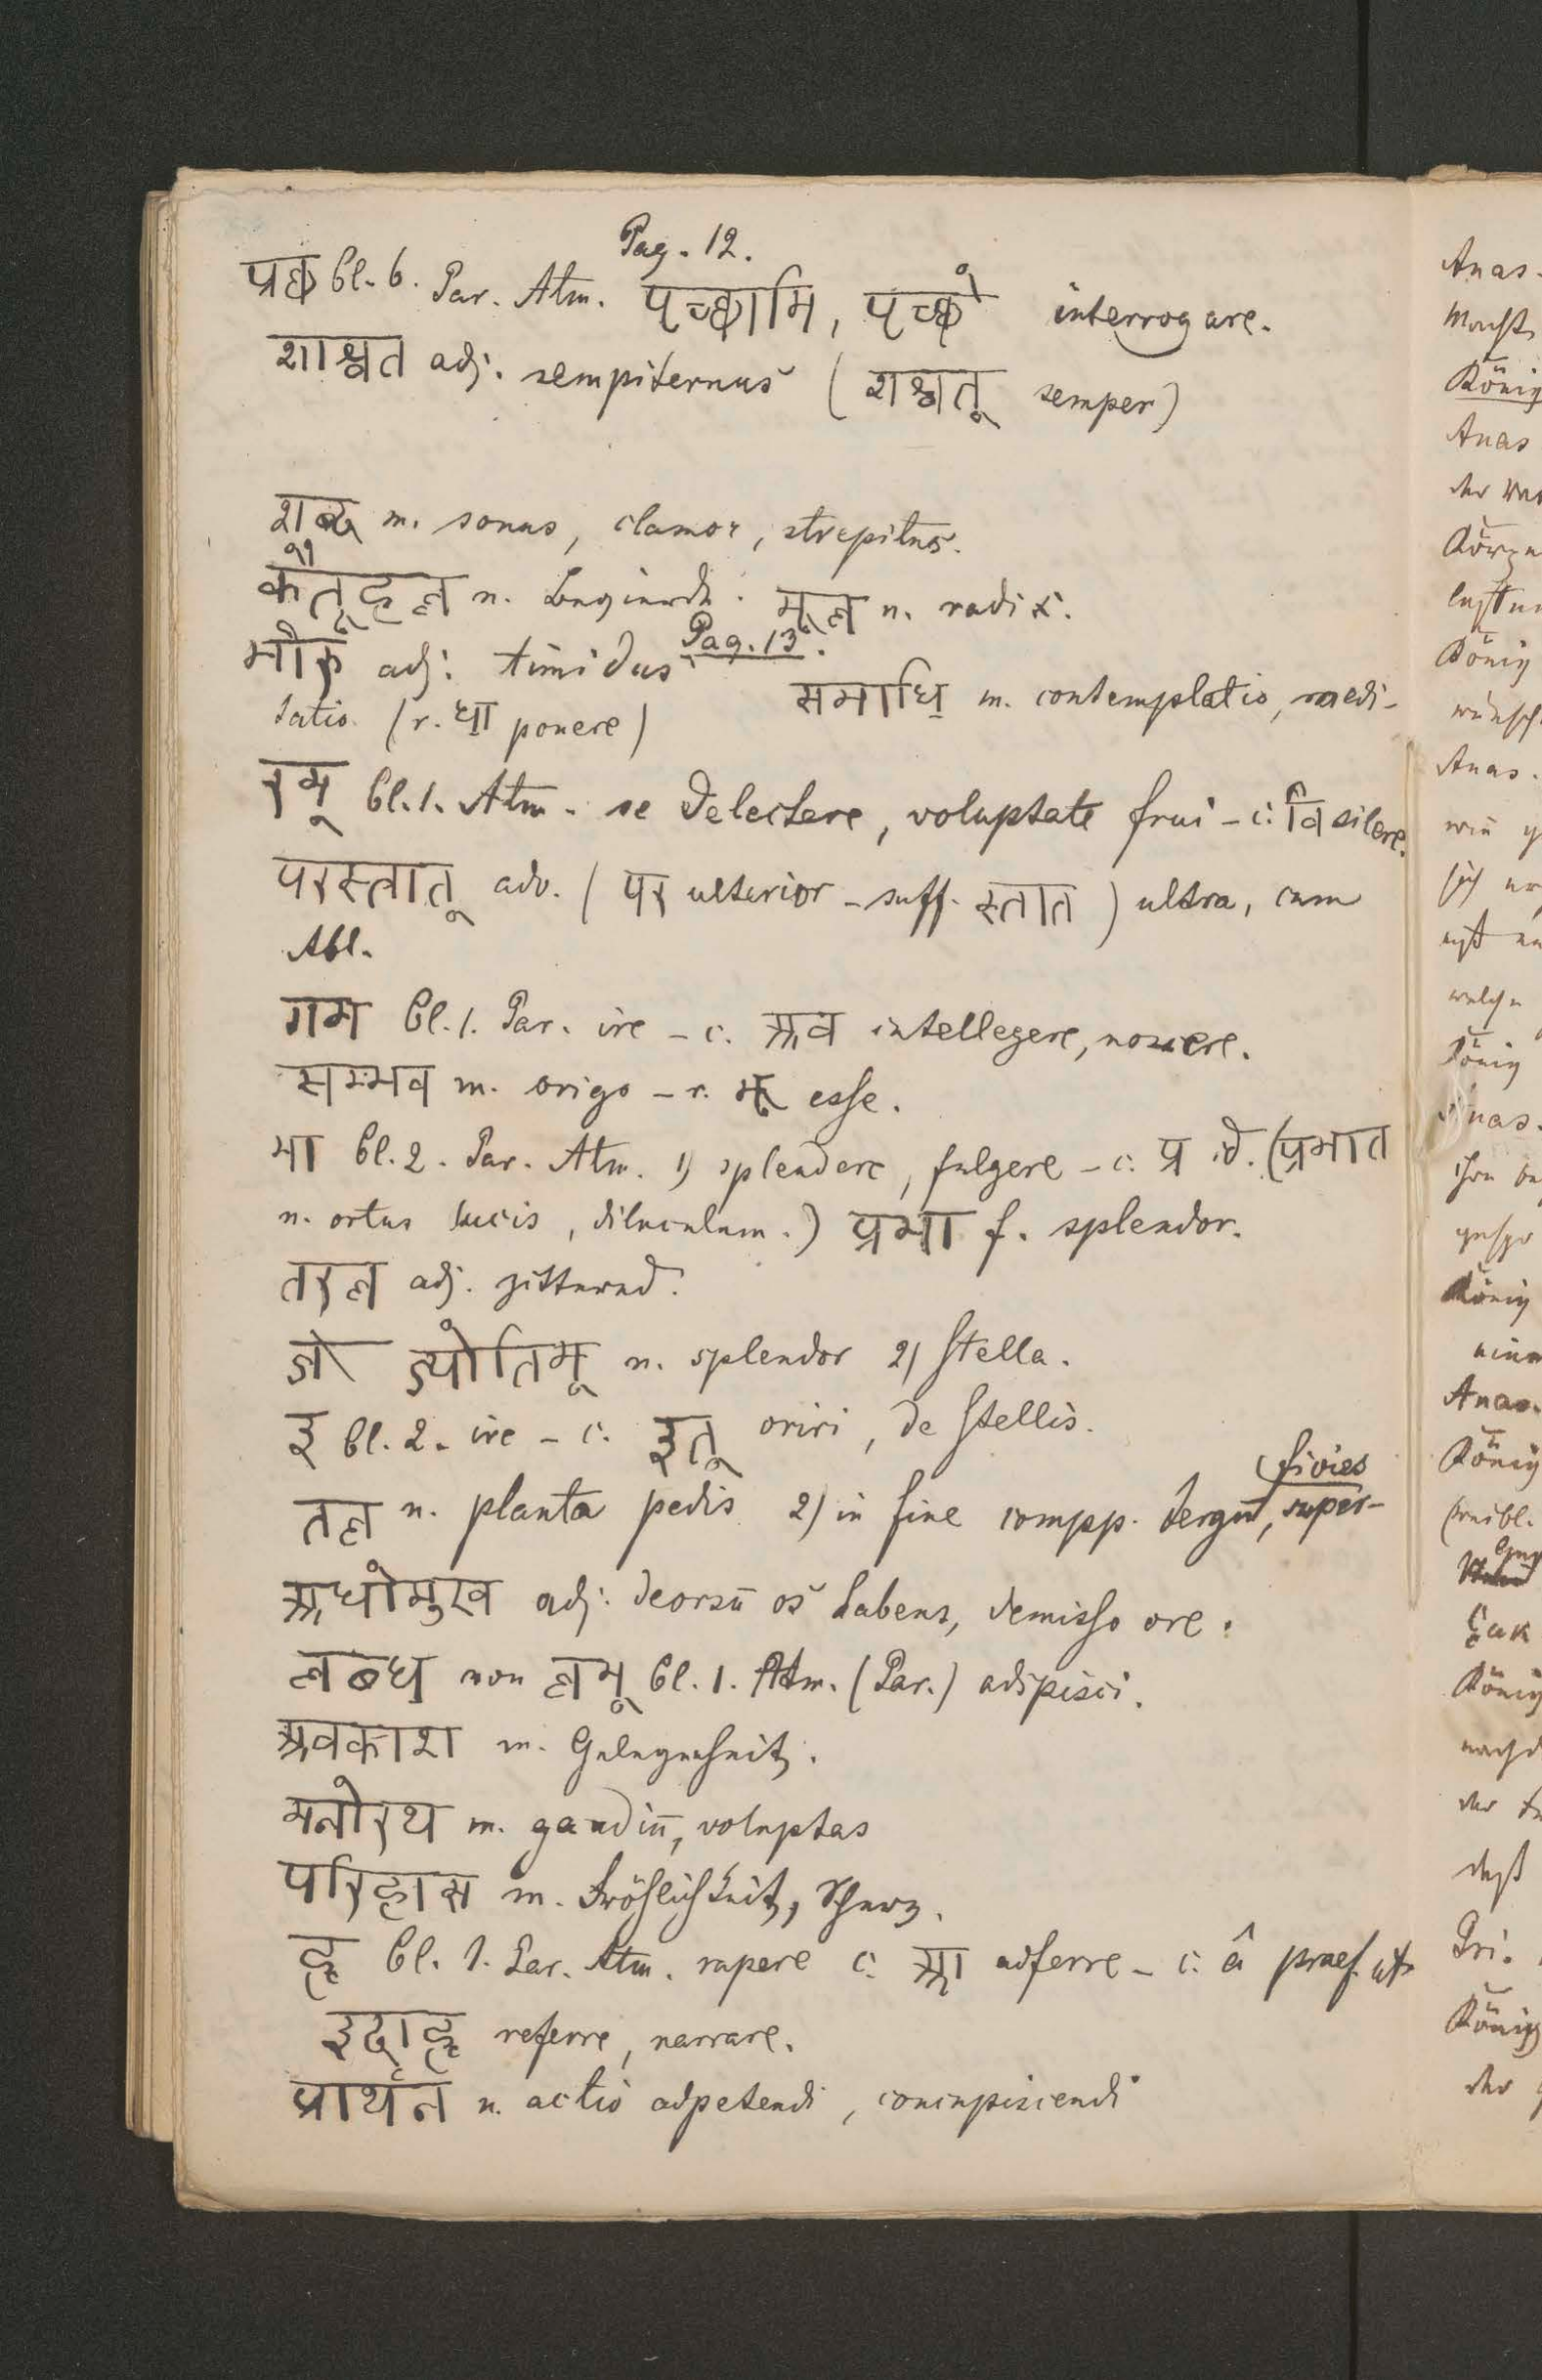 Pag. 12.
प्रछ Cl. 6. Par. Atm. पृच्छामि, पृच्छे interrogare.
शाश्वत adj. sempiternus (शश्वत् semper)
शब्द m. sonus, clamor, strepitus.
कौतूहल n. Begierde. मूल n. radix.
भीरु adj. timidus
Pag. 13.
समाधि m. contemplatio, medi-
tatio (r. धा ponere)
रम् Cl. 1. Atm. se delectere, voluptate frui – c. वि silere.
परस्तात् adv. (पर ulterior – suff. स्तात) ultra, cum
Abl.
गम Cl. 1. Par. ire – c. अव intellegere, noscere.
सम्भव m. origo – r. भू esse.
भा Cl. 2. Par. Atm. 1) splendere, fulgere – c. प्र id. (प्रभात
n. ortus lucis, diluculum.) प्रभा f. splendor.
तरल adj. zitternd.
ज्योतिम् n. splendor 2) stella.
इ Cl. 2. ire – c. इत् oriri, de stellis.
तल n. planta pedis 2) in fine compp. tergū, super-
ficies
अधोमुख adj. deorsū os habens, demisso ore.
लब्ध von लभ् Cl. 1. Atm. (Par.) adipisci.
अवकाश m. Gelegenheit.
मनोरथ m. gaudiū, voluptas
परिहास m. Fröhlichkeit, Scherz.
हृ Cl. 1. Par. Atm. rapere c. आ adferre – c. â praef. ut
इदाहृ referre, narrare.
प्रार्थन n. actio adpetendi, concupiscendi
Anas.
König
Anas
König
Anas.
König
Anas.
König
Anas.
König
König
Pri.
König